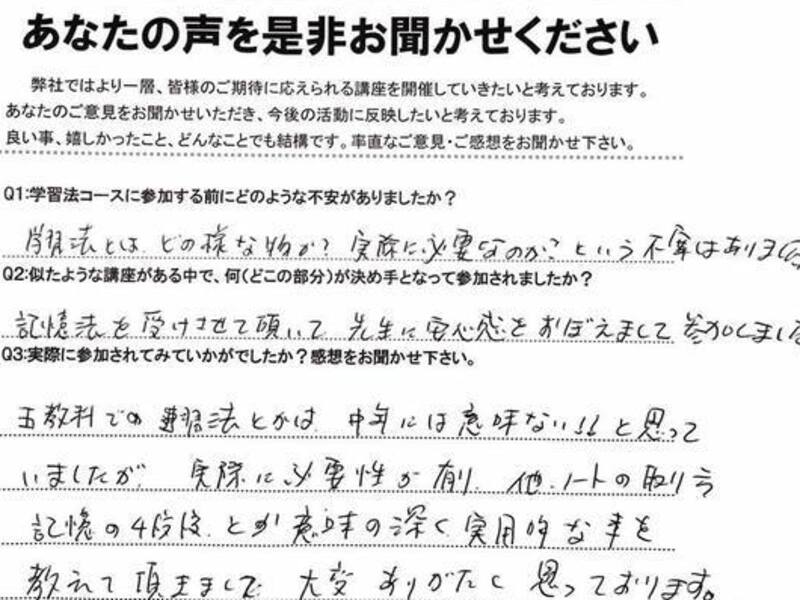 あなたの声を是非お聞かせください
弊社ではより一層、皆様のご期待に応えられる講座を開催していきたいと考えております。
あなたのご意見をお聞かせいただき、今後の活動に反映したいと考えております。
良い事、嬉しかったこと、どんなことでも結構です。率直なご意見・ご感想をお聞かせ下さい。
Q1:学習法コースに参加する前にどのような不安がありましたか？
学習法とは、どの様な物か？実際に必要なのか？という不安はありまし
Q2:似たような講座がある中で、何(どこの部分)が決め手となって参加されましたか？
記憶法を受けさせて頂いて 先生に安心感をおぼえまして 参加しまし
Q3:実際に参加されてみていかがでしたか？感想をお聞かせ下さい。
五教科での 学習法とかは 中年には意味ない!!と思って
いましたが、実際に必要性が有り、他、ノートの取り方
記憶の4段階、とか意味の深く実用的な事を
教えて頂きまして 大変 ありがたく思っております。